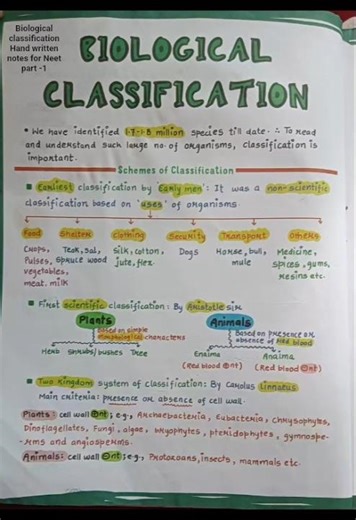 Biological
classification
Hand written
notes for Neet
part -1
BIOLOGICAL
CLASSIFICATION
• We have identified 1.7-1.8 million species till date. ∴ To read
and understand such large no. of organisms, classification is
important.
Schemes of Classification
Earliest classification by Early men: It was a non-scientific
classification based on 'uses' of organisms.
Food Shelter Clothing Security Transport Others
Crops, Teak, Sal, Silk, cotton, Dogs Horse, bull, Medicine,
Pulses, spruce wood jute, flex mule spices, gums,
vegetables, Resins etc.
meat, milk
First scientific classification: By Aristotle sir
Plants Animals
Based on simple Based on presence or
morphological characters absence of Red blood
Herb shrubs/bushes Tree Enaima Anaima
(Red blood ⊕nt) (Red blood ⊖nt)
Two Kingdom system of classification: By Carolus Linnaeus
Main criteria: presence or absence of cell wall.
Plants: cell wall ⊕nt; e.g., Archaebacteria, Eubacteria, Chrysophytes,
Dinoflagellates, Fungi, algae, bryophytes, pteridophytes, gymnospe-
-rms and angiosperms.
Animals: cell wall ⊖nt; e.g., Protozoans, insects, mammals etc.